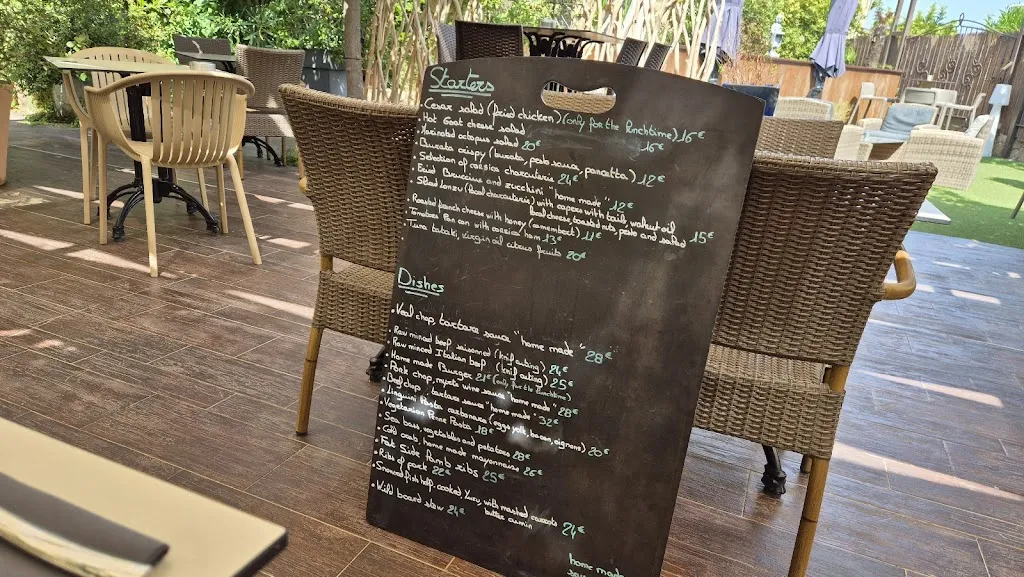 Starters
• Cesar salad (fried chicken) (only for the lunchtime) 16€
• Hot Goat cheese salad 16€
• Marinated octopus salad 20€
• Burata crispy (burata, pesto sauce, pancetta) 12€
• Selection of corsica charcuterie 24€
• Fried Bruccina and zucchini "home made" 12€
• lonzu (local charcuterie) with
local cheese, toasted nuts, pesto and salad 15€
• Roasted french cheese with honey (camembert) 11€
• Tomatoes Pan con with corsica ham 13€
• Tuna tataki, virgin oil citrus fruits 20€
Dishes
• Veal chop, tartare sauce "home made" 28€
• Raw minced beef seasonned (knif cutting) 24€
• Raw minced Italian beef (knif cutting) 25€
• Home made Burger 21€ (only for the lunchtime)
• Pork chop, myrte wine sauce "home made" 28€
• Beef chop, tartare sauce "home made" 32€
• Linguini Pasta carbonara (eggs yolk, bacon, oignons) 20€
• Vegetarian Penne Pasta 18€
• Sea bass, vegetables and potatoes 28€
• Cold crab, home made mayonnaise 26€
• Fat Side Pork ribs 25€
• Ribs of pork 22€
• Snacked fish half-cooked with mashed carrots
butter cumin 24€
• Wild board stew 24€
home made